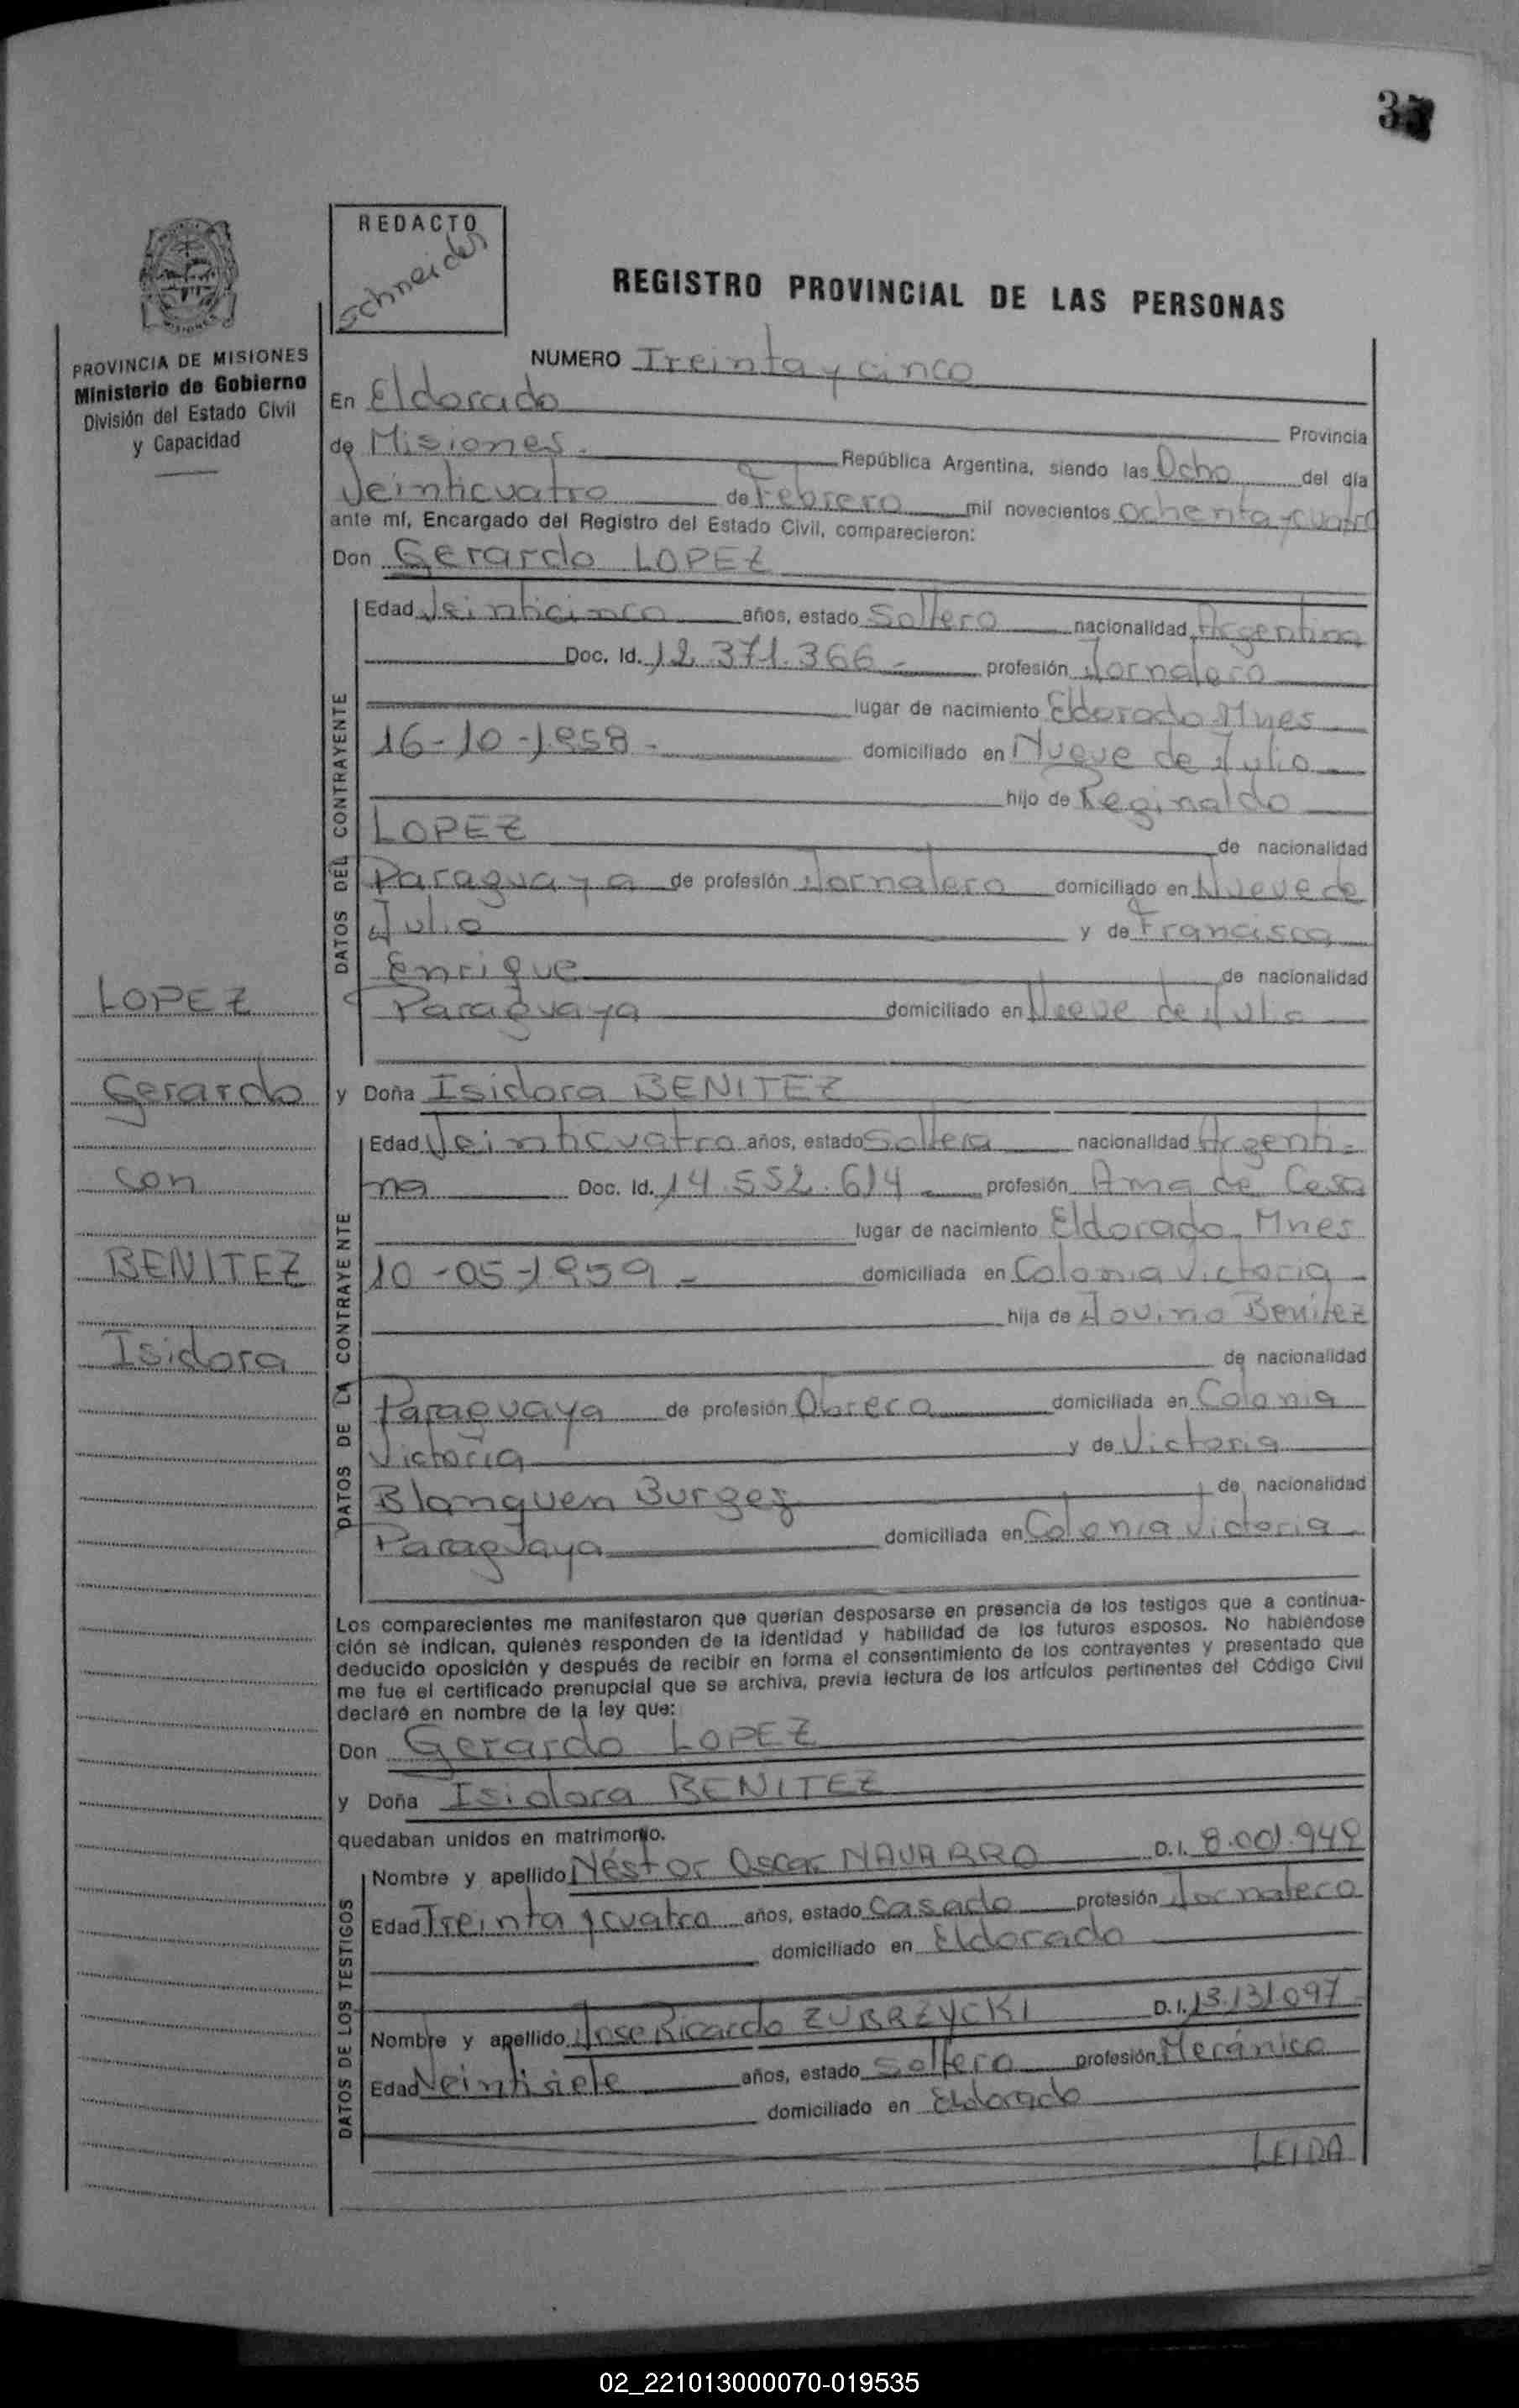 35
REDACTO
Schneider
REGISTRO PROVINCIAL DE LAS PERSONAS
PROVINCIA DE MISIONES
Ministerio de Gobierno
División del Estado Civil
y Capacidad
NUMERO Treinta y cinco
En Eldorado
Provincia
de Misiones.- República Argentina, siendo las Ocho del día
Veinticuatro de Febrero mil novecientos ochenta y cuatro
ante mí, Encargado del Registro del Estado Civil, comparecieron:
Don Gerardo LOPEZ
DATOS DEL CONTRAYENTE
Edad Veinticinco años, estado Soltero nacionalidad Argentina
Doc. Id. 12.371.366.- profesión Jornalero
lugar de nacimiento Eldorado Mnes
16-10-1958.- domiciliado en Nueve de Julio
hijo de Reginaldo
LOPEZ de nacionalidad
Paraguaya de profesión Jornalero domiciliado en Nueve de
Julio y de Francisca
Enrique de nacionalidad
Paraguaya domiciliado en Nueve de Julio
LOPEZ
Gerardo
con
BENITEZ
Isidora
y Doña Isidora BENITEZ
DATOS DE LA CONTRAYENTE
Edad Veinticuatro años, estado Soltera nacionalidad Argenti-
na Doc. Id. 14.552.614 profesión Ama de Casa
lugar de nacimiento Eldorado Mnes
10-05-1959.- domiciliada en Colonia Victoria
hija de Jovino Benitez
de nacionalidad
Paraguaya de profesión Obrero domiciliada en Colonia
Victoria y de Victoria
Blanquen Burgez de nacionalidad
Paraguaya domiciliada en Colonia Victoria
Los comparecientes me manifestaron que querían desposarse en presencia de los testigos que a continua-
ción se indican, quienes responden de la identidad y habilidad de los futuros esposos. No habiéndose
deducido oposición y después de recibir en forma el consentimiento de los contrayentes y presentado que
me fue el certificado prenupcial que se archiva, previa lectura de los artículos pertinentes del Código Civil
declaré en nombre de la ley que:
Don Gerardo LOPEZ
y Doña Isidora BENITEZ
quedaban unidos en matrimonio.
DATOS DE LOS TESTIGOS
Nombre y apellido Néstor Oscar NAVARRO D.I. 8.001.949
Edad Treinta y cuatro años, estado Casado profesión Jornalero
domiciliado en Eldorado
Nombre y apellido Jose Ricardo ZUBRZYCKI D.I. 13.131.097
Edad Veintisiete años, estado Soltero profesión Mecánico
domiciliado en Eldorado
LEIDA
02_221013000070-019535